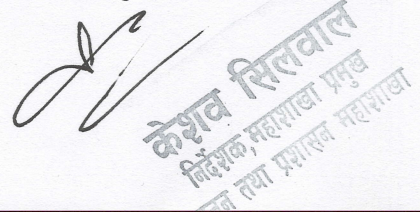 केशव सिलवाल
निर्देशक, महाशाखा प्रमुख
तथा प्रशासन महाशाखा